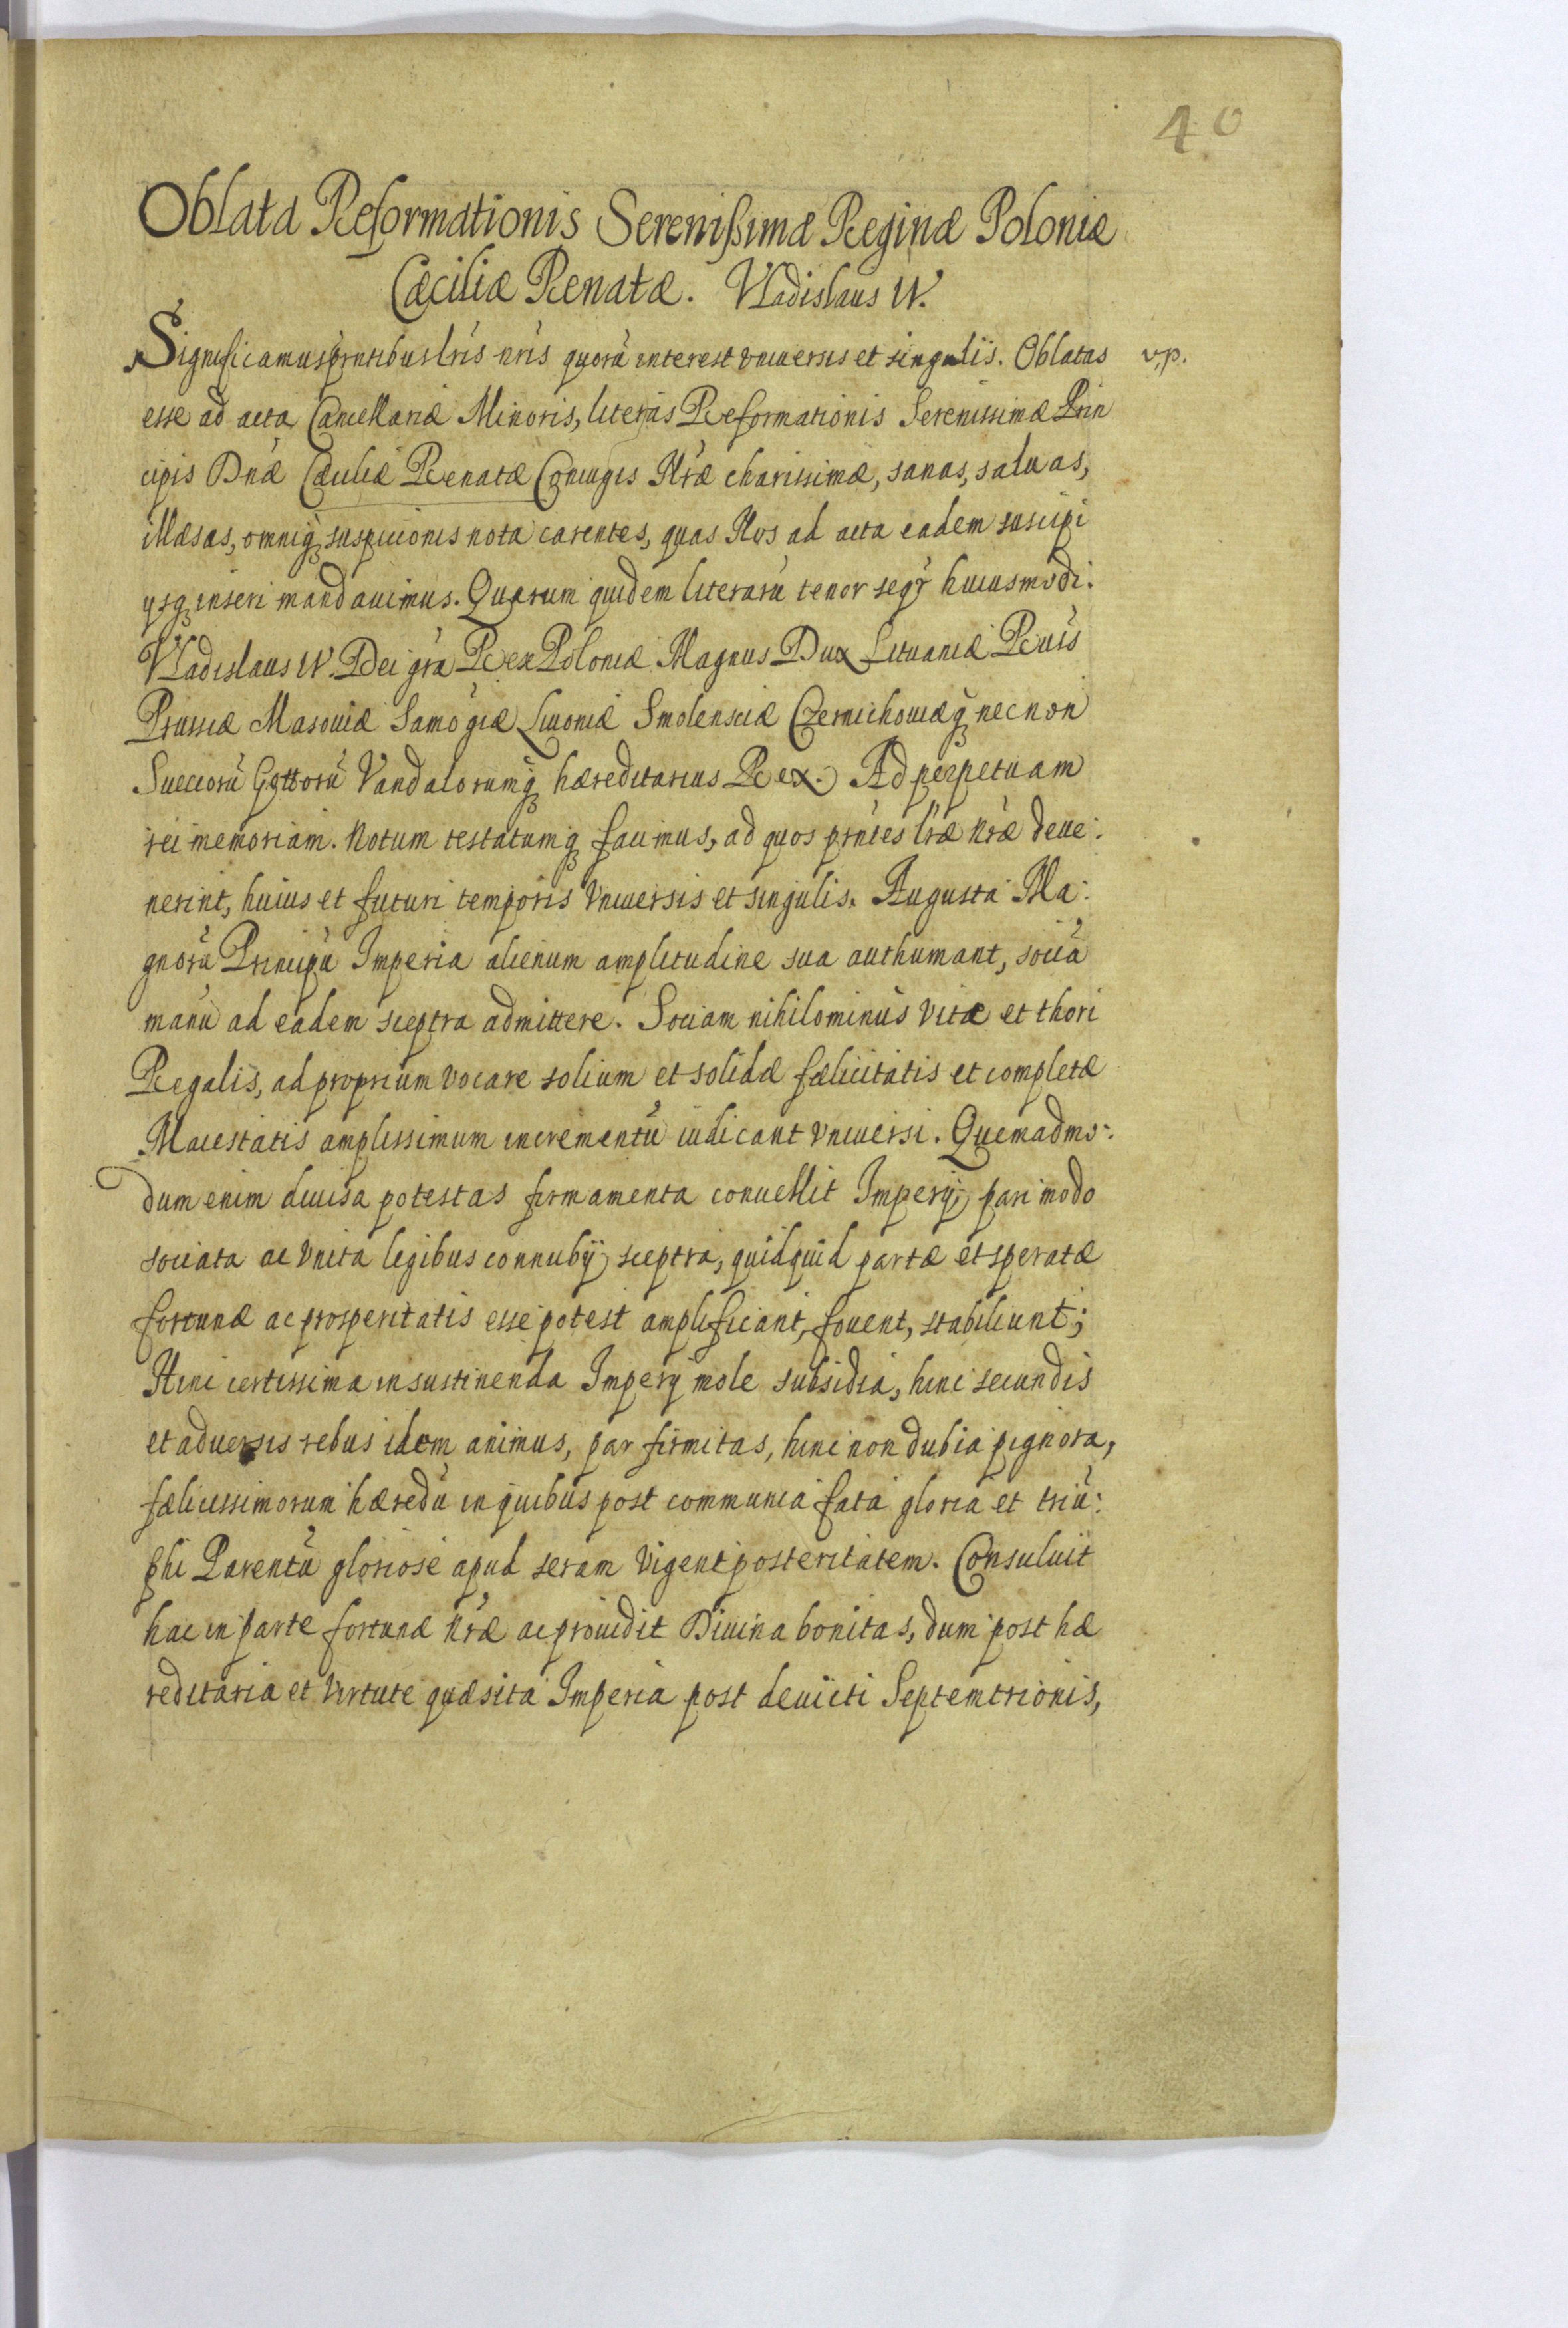 40
Oblata Reformationis Serenissimæ Reginæ Poloniæ
Cæciliæ Renatæ. Vladislaus IV.
Significamus pꝛntibus lrĩs nrĩs quorũ interest vniuersis et singulis. Oblatas v.p.
esse ad acta Cancellariæ Minoris, literas Reformationis Serenissimæ Prin
cipis Dnæ Cæciliæ Renatæ Coniugis Nr̃æ charissimæ, sanas, saluas,
illæsas, omniq̃ suspicionis nota carentes, quas Nos ad acta eadem suscipi
ysq̃ inseri mandauimus. Quarum quidem literarũ tenor seqr̃ huiusmodi.
Vladislaus IV. Dei gr̃a Rex Poloniæ Magnus Dux Lituaniæ Russ
Prussiæ Masouiæ Samogiæ Liuoniæ Smolensciæ Czernichouiæq̃ necnon
Suecorũ Gottorũ Vandalorumq̃ hæreditarius Rex. Ad perpetuam
rei memoriam. Notum testatumq̃ facimus, ad quos prñtes lr̃æ Nr̃æ deue:
nerint, huius et futuri temporis Vniuersis et singulis. Augusta Ma:
gnorũ Principũ Imperia alienum amplitudine sua authumant, sociã
manũ ad eadem sceptra admittere. Sociam nihilominus Vitæ et thori
Regalis, ad proprium vocare solium et solidæ fælicitatis et completæ
Maiestatis amplissimum incrementũ iudicant vniuersi. Quemadmo:
dum enim diuisa potestas firmamenta conuellit Imperij, pari modo
sociata ac Vnita legibus connubij sceptra, quidquid partæ et speratæ
fortunæ ac prosperitatis esse potest amplificant, fouent, stabiliunt;
Hinc certissima in sustinenda Imperij mole subsidia, hinc secundis
et aduersis rebus idem animus, par firmitas, hinc non dubia pignora,
fælicissimorum hæredũ in quibus post communia fata gloria et triũ:
phi Parentũ gloriose apud seram Vigent posteritatem. Consuluit
hac in parte fortunæ Nr̃æ ac prouidit Diuina bonitas, dum post hæ
reditaria et Virtute quæsita Imperia post deuicti Septemtrionis,